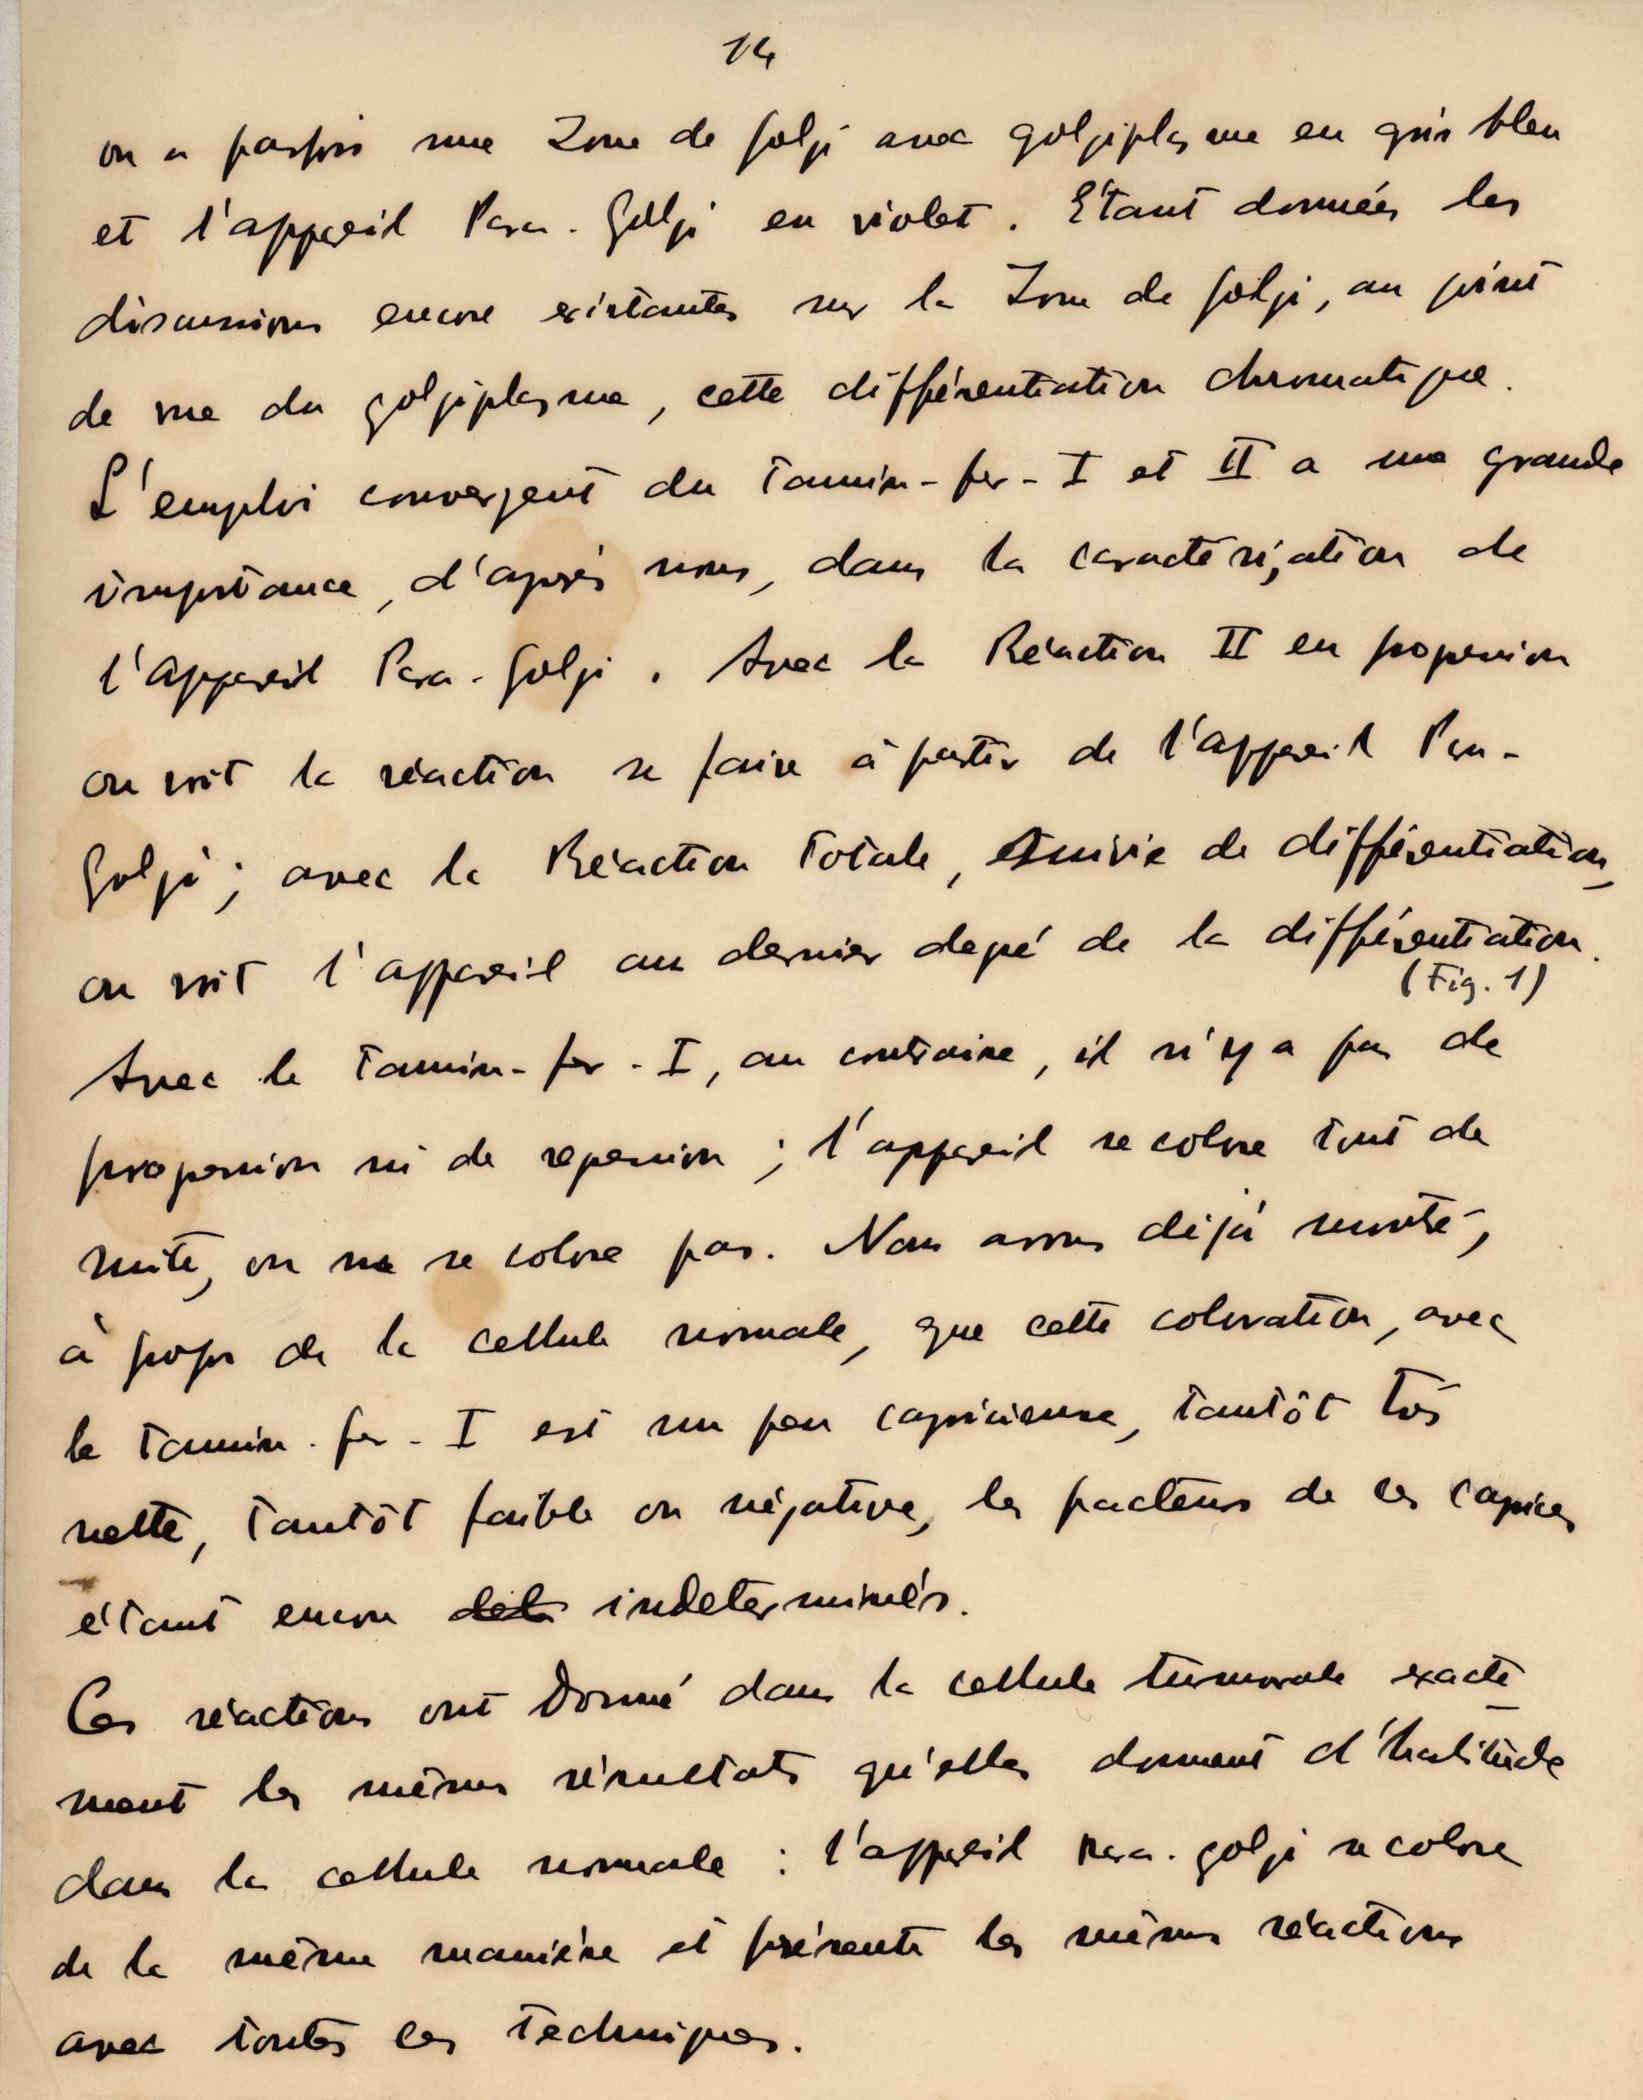 14
on a parfois une Zone de Golgi avec golgiplasme en gris bleu
et l'appareil Para-Golgi en violet. Étant données les
discussions encore existantes sur la Zone de Golgi, au point
de vue du golgiplasme, cette différentiation chromatique.
L'emploi convergent du Tannin-fer-I et II a une grande
importance, d'après nous, dans la caractérisation de
l'appareil Para-Golgi. Avec la Réaction II en progression
on voit la réaction se faire à partir de l'appareil Para-
Golgi; avec la Réaction Totale, suivie de différentiation,
on voit l'appareil au dernier degré de la différentiation.
(Fig. 1)
Avec le Tannin-fer-I, au contraire, il n'y a pas de
progression ni de regression; l'appareil se colore tout de
suite, ou ne se colore pas. Nous avons déjà montré,
à propos de la cellule normale, que cette coloration, avec
le Tannin-fer-I est un peu capricieuse, tantôt très
nette, tantôt faible ou négative, les facteurs de ces caprices
étant encore indeterminés.
Ces réactions ont donné dans la cellule tumorale exacte-
ment les mêmes résultats qu'elles donnent d'habitude
dans la cellule normale : l'appareil Para-golgi se colore
de la même manière et présente les mêmes réactions
avec toutes ces techniques.